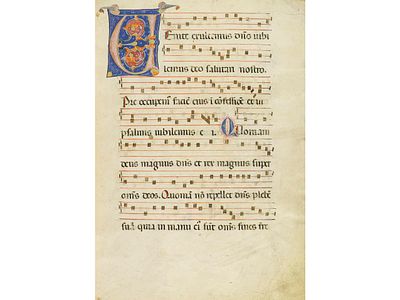 Enite exultemus dño iubi
lemus deo salutari nostro.
Pre occupem' faciē eius ī cōfessiōe et ī
psalmis iubilemus e i. Quoniam
deus magnus dñs et rex magnus super
omīs deos. Quoniā nō repellet dñs plebē
suā quia in manu ei' sūt omīs fines tre